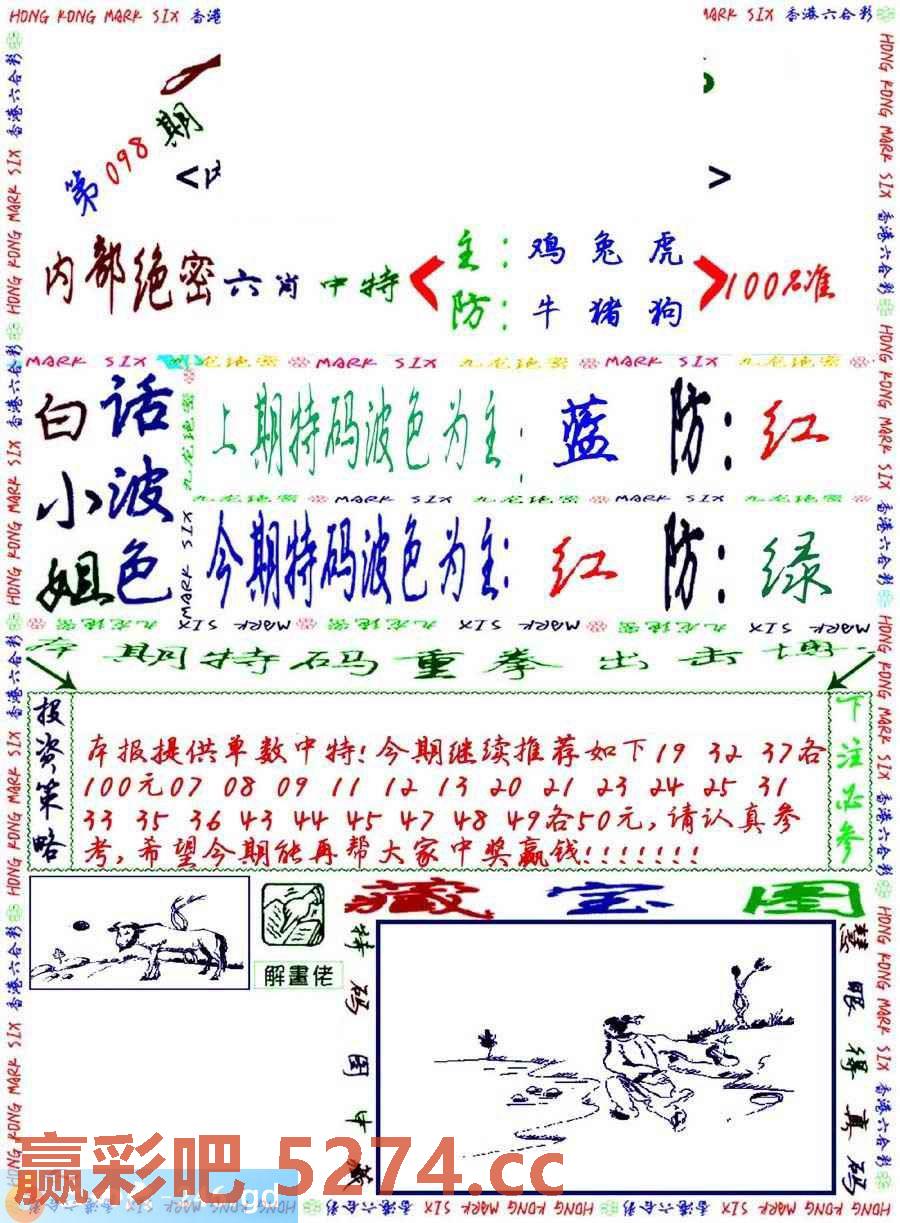 HONG KONG MARK SIX 香港
MARK SIX 香港六合彩
第098期
内部绝密六肖中特
主：鸡兔虎
防：牛猪狗
100%准
MARK SIX 九龙绝密 MARK SIX 九龙绝密 MARK SIX 九龙绝密
白小姐
话波色
上期特码波色为主：蓝 防：红
九龙绝密 MARK SIX 九龙绝密 MARK SIX 九龙绝密
今期特码波色为主：红 防：绿
九龙绝密 MARK SIX 九龙绝密 MARK SIX 九龙绝密 MARK SIX
本期特码重拳出击
投资策略
本报提供单数中特!今期继续推荐如下19 32 37各
100元07 08 09 11 12 13 20 21 23 24 25 31
33 35 36 43 44 45 47 48 49各50元,请认真参
考,希望今期能再帮大家中奖赢钱!!!!!!!
下注必参
解畫佬
藏宝图
特码图中藏
慧眼得真码
赢彩吧 5274.cc
HONG KONG MARK SIX 香港六合彩